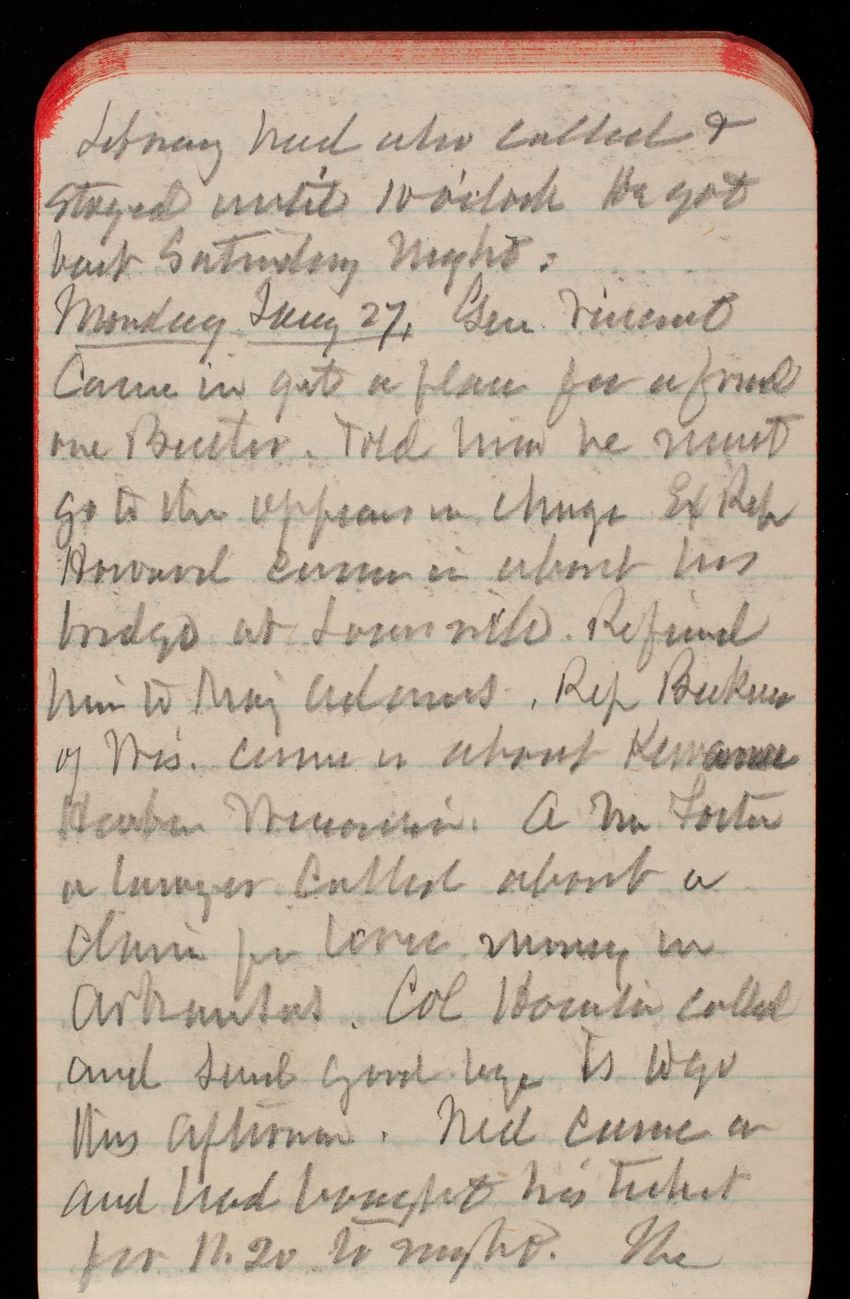 Library Ned also called &
stayed until 10 o'clock He got
back Saturday Night.
Monday Jany 27, Gen Vincent
Came in get a place for a friend
one Butler. Told him he must
go to the officers in charge Ex Rep
Howard came in about his
bridge at Louisville. Refered
him to Maj Adams. Rep
of Wis. came in about Kewaunee
Harbor Wisconsin. A Mr Foster
a lawyer Called about a
Claim for levee money in
Arkansas. Col called
and said good bye Is to go
this afternoon. Ned came in
and had bought his ticket
for 11.20 to night. The